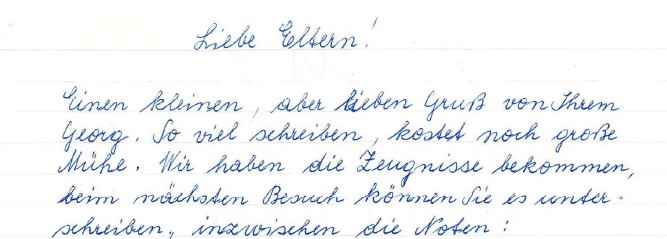 Liebe Eltern!
Einen kleinen, aber lieben Gruß von Ihrem
Georg. So viel schreiben, kostet noch große
Mühe. Wir haben die Zeugnisse bekommen,
beim nächsten Besuch können Sie es unter-
schreiben, inzwischen die Noten: